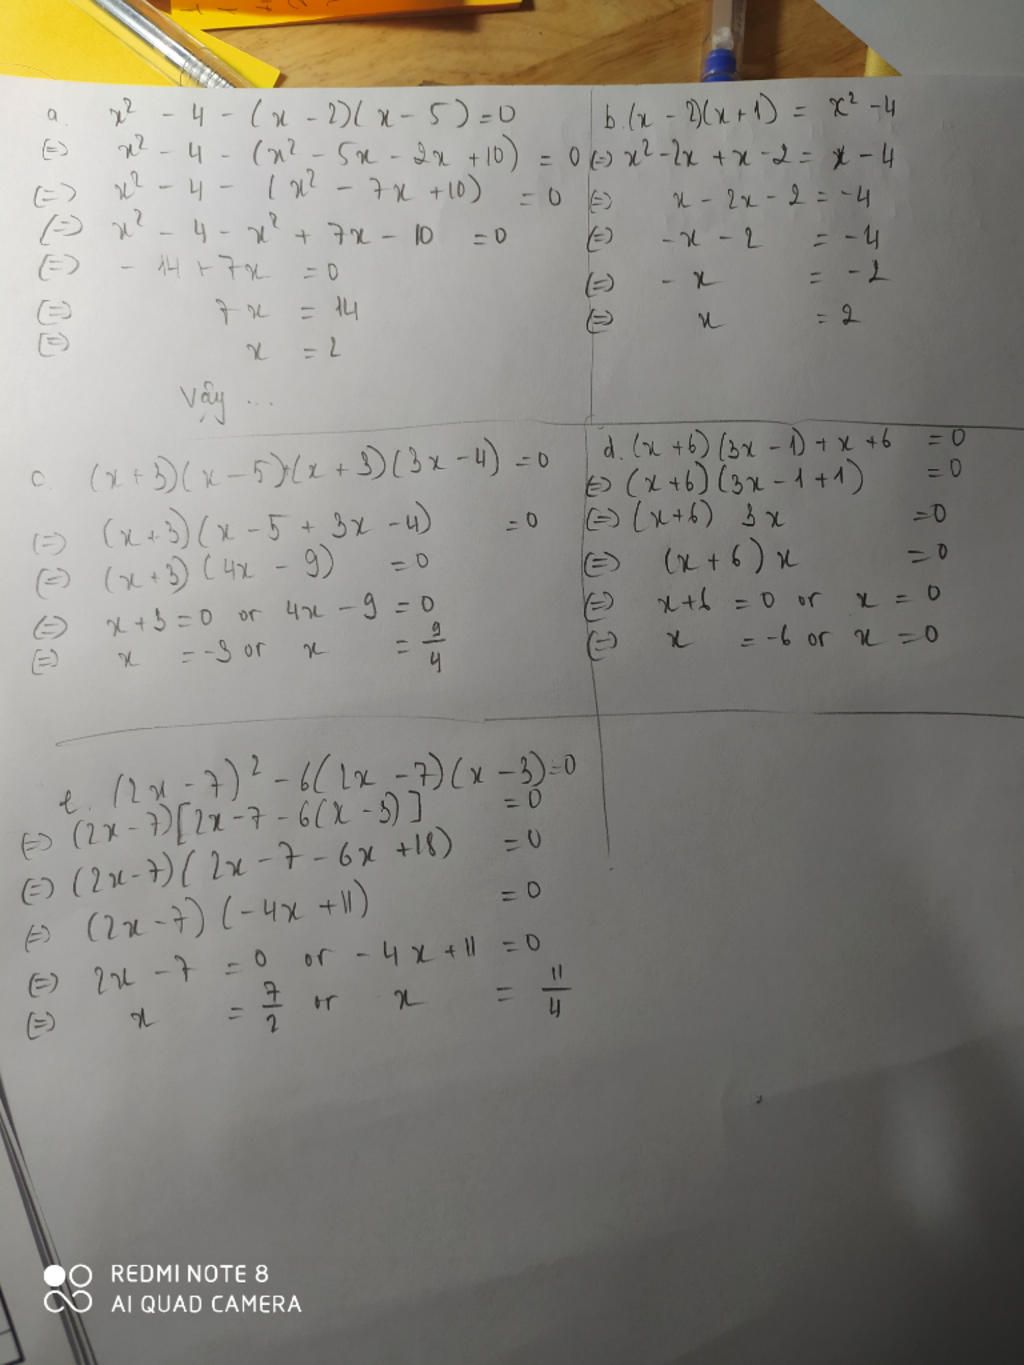 a. x² - 4 - (x - 2)(x - 5) = 0
(=) x² - 4 - (x² - 5x - 2x + 10) = 0
(=) x² - 4 - (x² - 7x + 10) = 0
(=) x² - 4 - x² + 7x - 10 = 0
(=) - 14 + 7x = 0
(=) 7x = 14
(=) x = 2
Vậy ...
b. (x - 2)(x + 1) = x² - 4
(=) x² - 2x + x - 2 = x - 4
(=) x - 2x - 2 = - 4
(=) - x - 2 = - 4
(=) - x = - 2
(=) x = 2
c. (x + 3)(x - 5) + (x + 3)(3x - 4) = 0
(=) (x + 3)(x - 5 + 3x - 4) = 0
(=) (x + 3)(4x - 9) = 0
(=) x + 3 = 0 or 4x - 9 = 0
(=) x = -3 or x = 9/4
d. (x + 6)(3x - 1) + x + 6 = 0
(=) (x + 6)(3x - 1 + 1) = 0
(=) (x + 6) 3x = 0
(=) (x + 6) x = 0
(=) x + 6 = 0 or x = 0
(=) x = -6 or x = 0
e. (2x - 7)² - 6(2x - 7)(x - 3) = 0
(=) (2x - 7)[2x - 7 - 6(x - 3)] = 0
(=) (2x - 7)(2x - 7 - 6x + 18) = 0
(=) (2x - 7)(-4x + 11) = 0
(=) 2x - 7 = 0 or - 4x + 11 = 0
(=) x = 7/2 or x = 11/4
REDMI NOTE 8
AI QUAD CAMERA